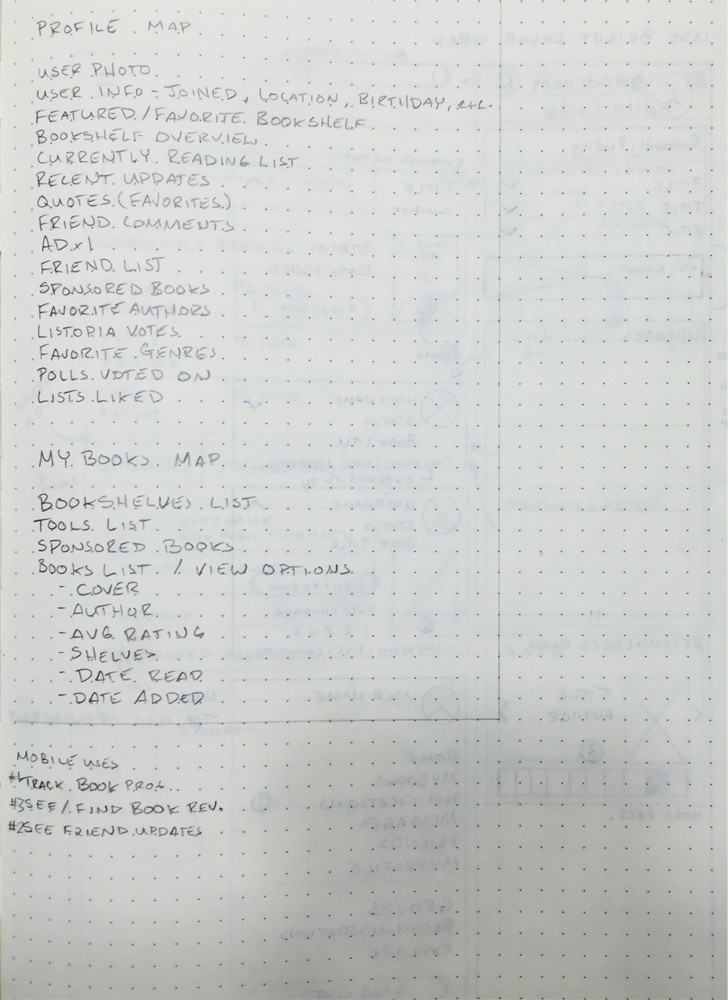 PROFILE MAP
USER PHOTO
USER INFO - JOINED, LOCATION, BIRTHDAY, etc.
FEATURED / FAVORITE BOOKSHELF
BOOKSHELF OVERVIEW
CURRENTLY READING LIST
RECENT UPDATES
QUOTES (FAVORITES)
FRIEND COMMENTS
AD x1
FRIEND LIST
SPONSORED BOOKS
FAVORITE AUTHORS
LISTOPIA VOTES
FAVORITE GENRES
POLLS VOTED ON
LISTS LIKED
MY BOOKS MAP
BOOKSHELVES LIST
TOOLS LIST
SPONSORED BOOKS
BOOKS LIST / VIEW OPTIONS
- COVER
- AUTHOR
- AVG RATING
- SHELVES
- DATE READ
- DATE ADDED
MOBILE USES
#1 TRACK BOOK PROG.
#3 SEE / FIND BOOK REV.
#2 SEE FRIEND UPDATES